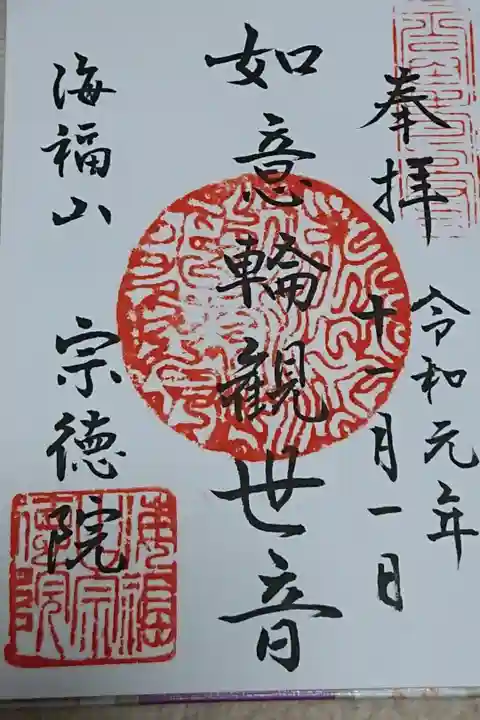 奉拝
令和元年
十一月一日
如意輪觀世音
海福山 宗徳院
海福山宗徳院